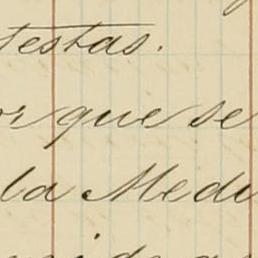 testas.
or que se
la Medi